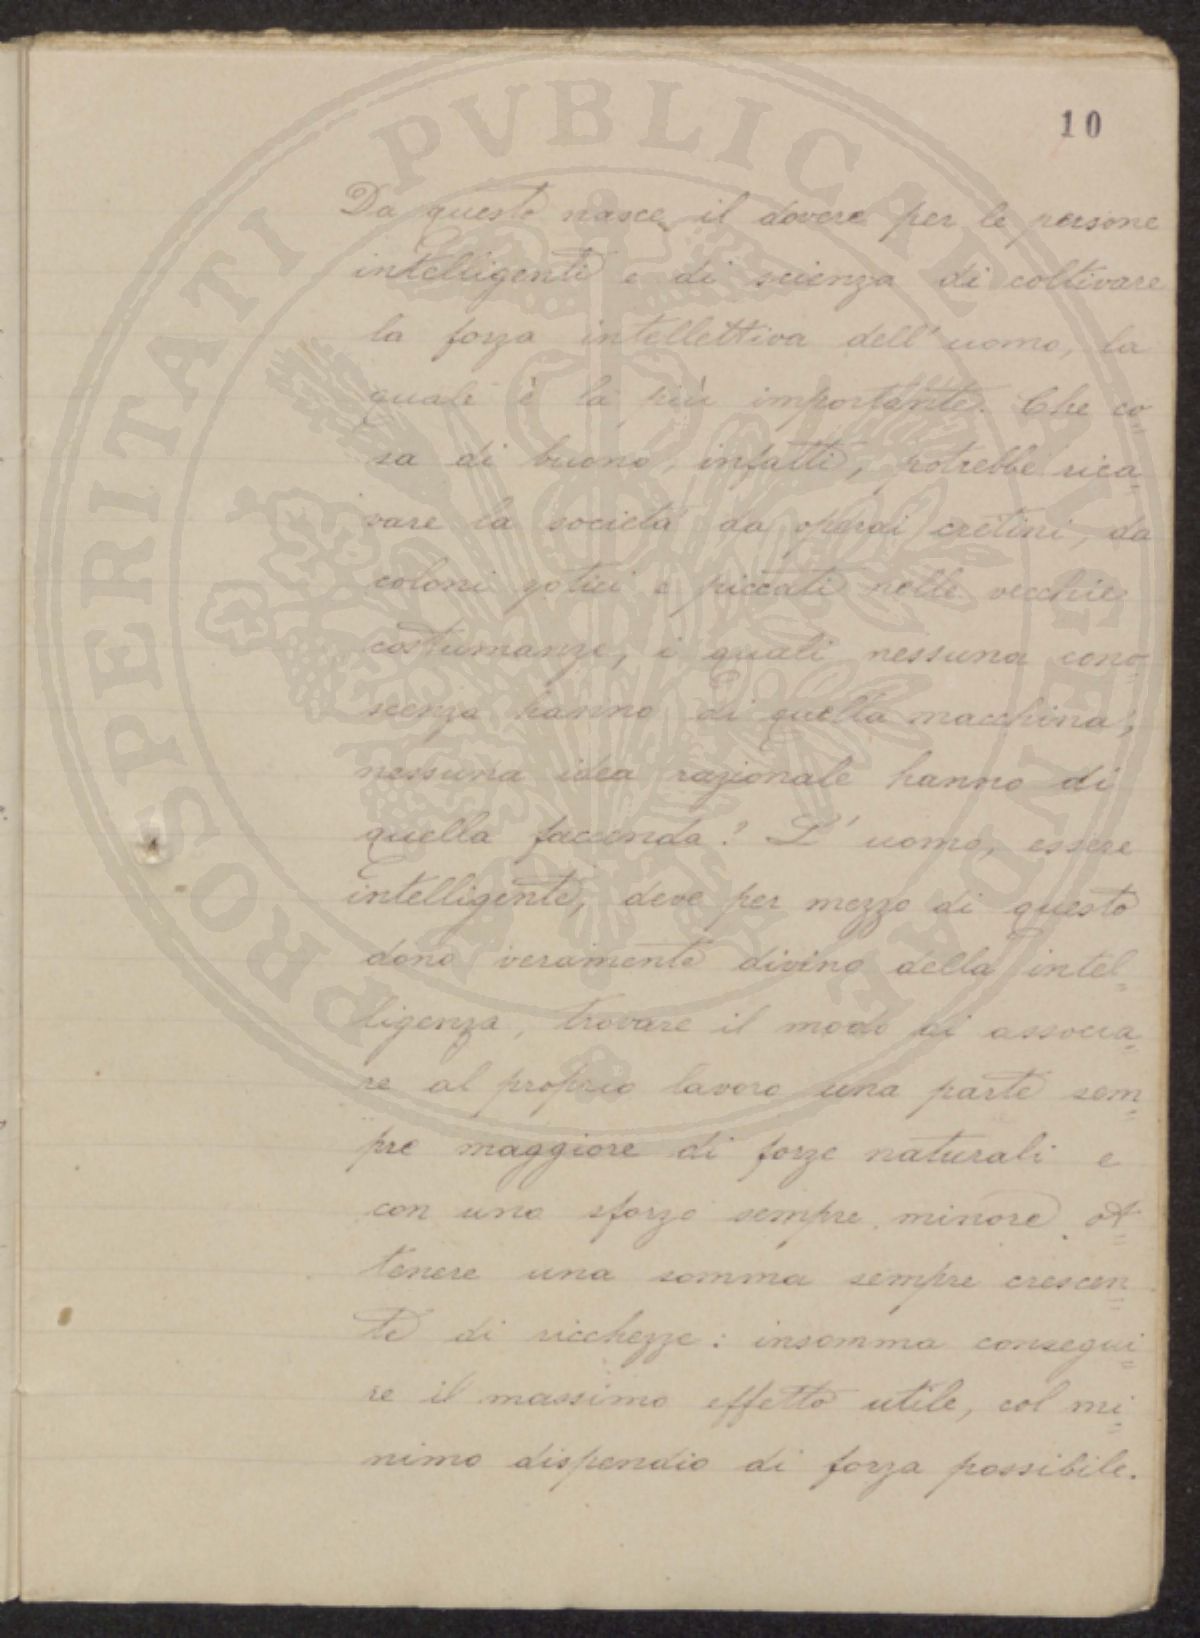 10
Da questo nasce il dovere per le persone
intelligenti e di scienza di coltivare
la forza intellettiva dell'uomo, la
quale è la più importante. Che co=
sa di buono, infatti, potrebbe rica=
vare la società da operai cretini, da
coloni gotici e piccati nelle vecchie
costumanze, i quali nessuna cono=
scenza hanno di quella macchina,
nessuna idea razionale hanno di
quella faccenda? L'uomo, essere
intelligente, deve per mezzo di questo
dono veramente divino della intel=
ligenza, trovare il modo di associa=
re al proprio lavoro una parte sem=
pre maggiore di forze naturali e
con uno sforzo sempre minore ot=
tenere una somma sempre crescen=
te di ricchezze: insomma consegui=
re il massimo effetto utile, col mi=
nimo dispendio di forza possibile.
PROSPERITATI PVBLICAE AVGENDAE